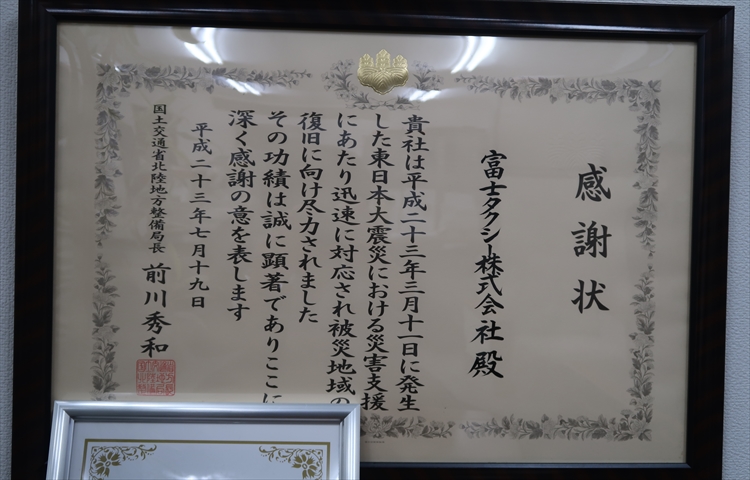 感謝状
富士タクシー株式会社殿
貴社は平成二十三年三月十一日に発生
した東日本大震災における災害支援
にあたり迅速に対応され被災地域の
復旧に向け尽力されました
その功績は誠に顕著でありここに
深く感謝の意を表します
平成二十三年七月十九日
国土交通省北陸地方整備局長 前川秀和